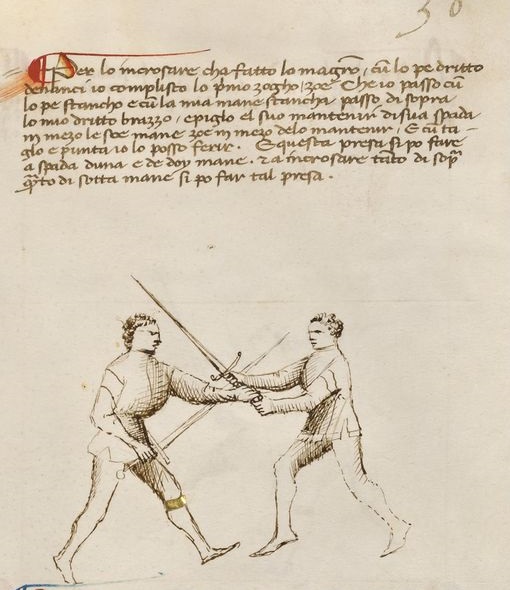 50
Per lo incrosare cha fatto lo magr̄o, cū lo pe dritto
denanci io complisco lo p̄mo zogho, zoe Che io passo cū
lo pe stancho e cū la mia mane stancha passo di sopra
lo mio dritto brazzo, e piglo el suo mantenir di sua spada
in mezo le soe mane zoe in mezo delo mantenir, E cū ta-
glo e punta io lo posso ferir. E questa presa si po fare
a spada duna e de doy mane. ⁊ a incrosare tāto di sop̄
q̄̄to di sotta mane si po far tal presa.